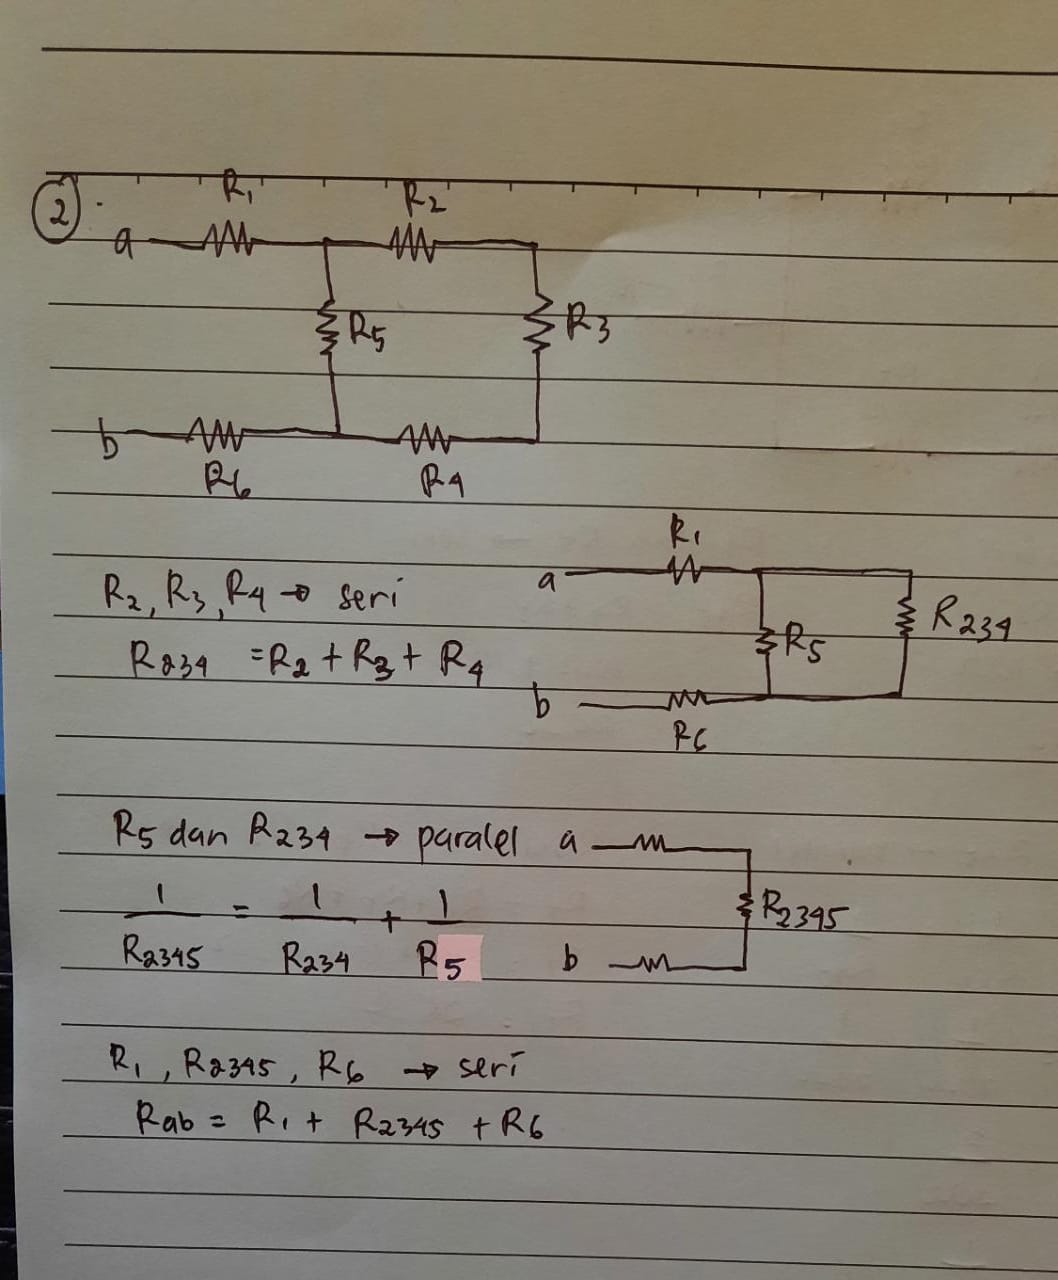 2
R1 R2
a
R5 R3
b
R6 R4
R1
a
R2, R3, R4 → seri
R5 R234
R234 = R2 + R3 + R4
b
R6
R5 dan R234 → paralel a
1/R2345 = 1/R234 + 1/R5
R2345
b
R1, R2345, R6 → seri
Rab = R1 + R2345 + R6